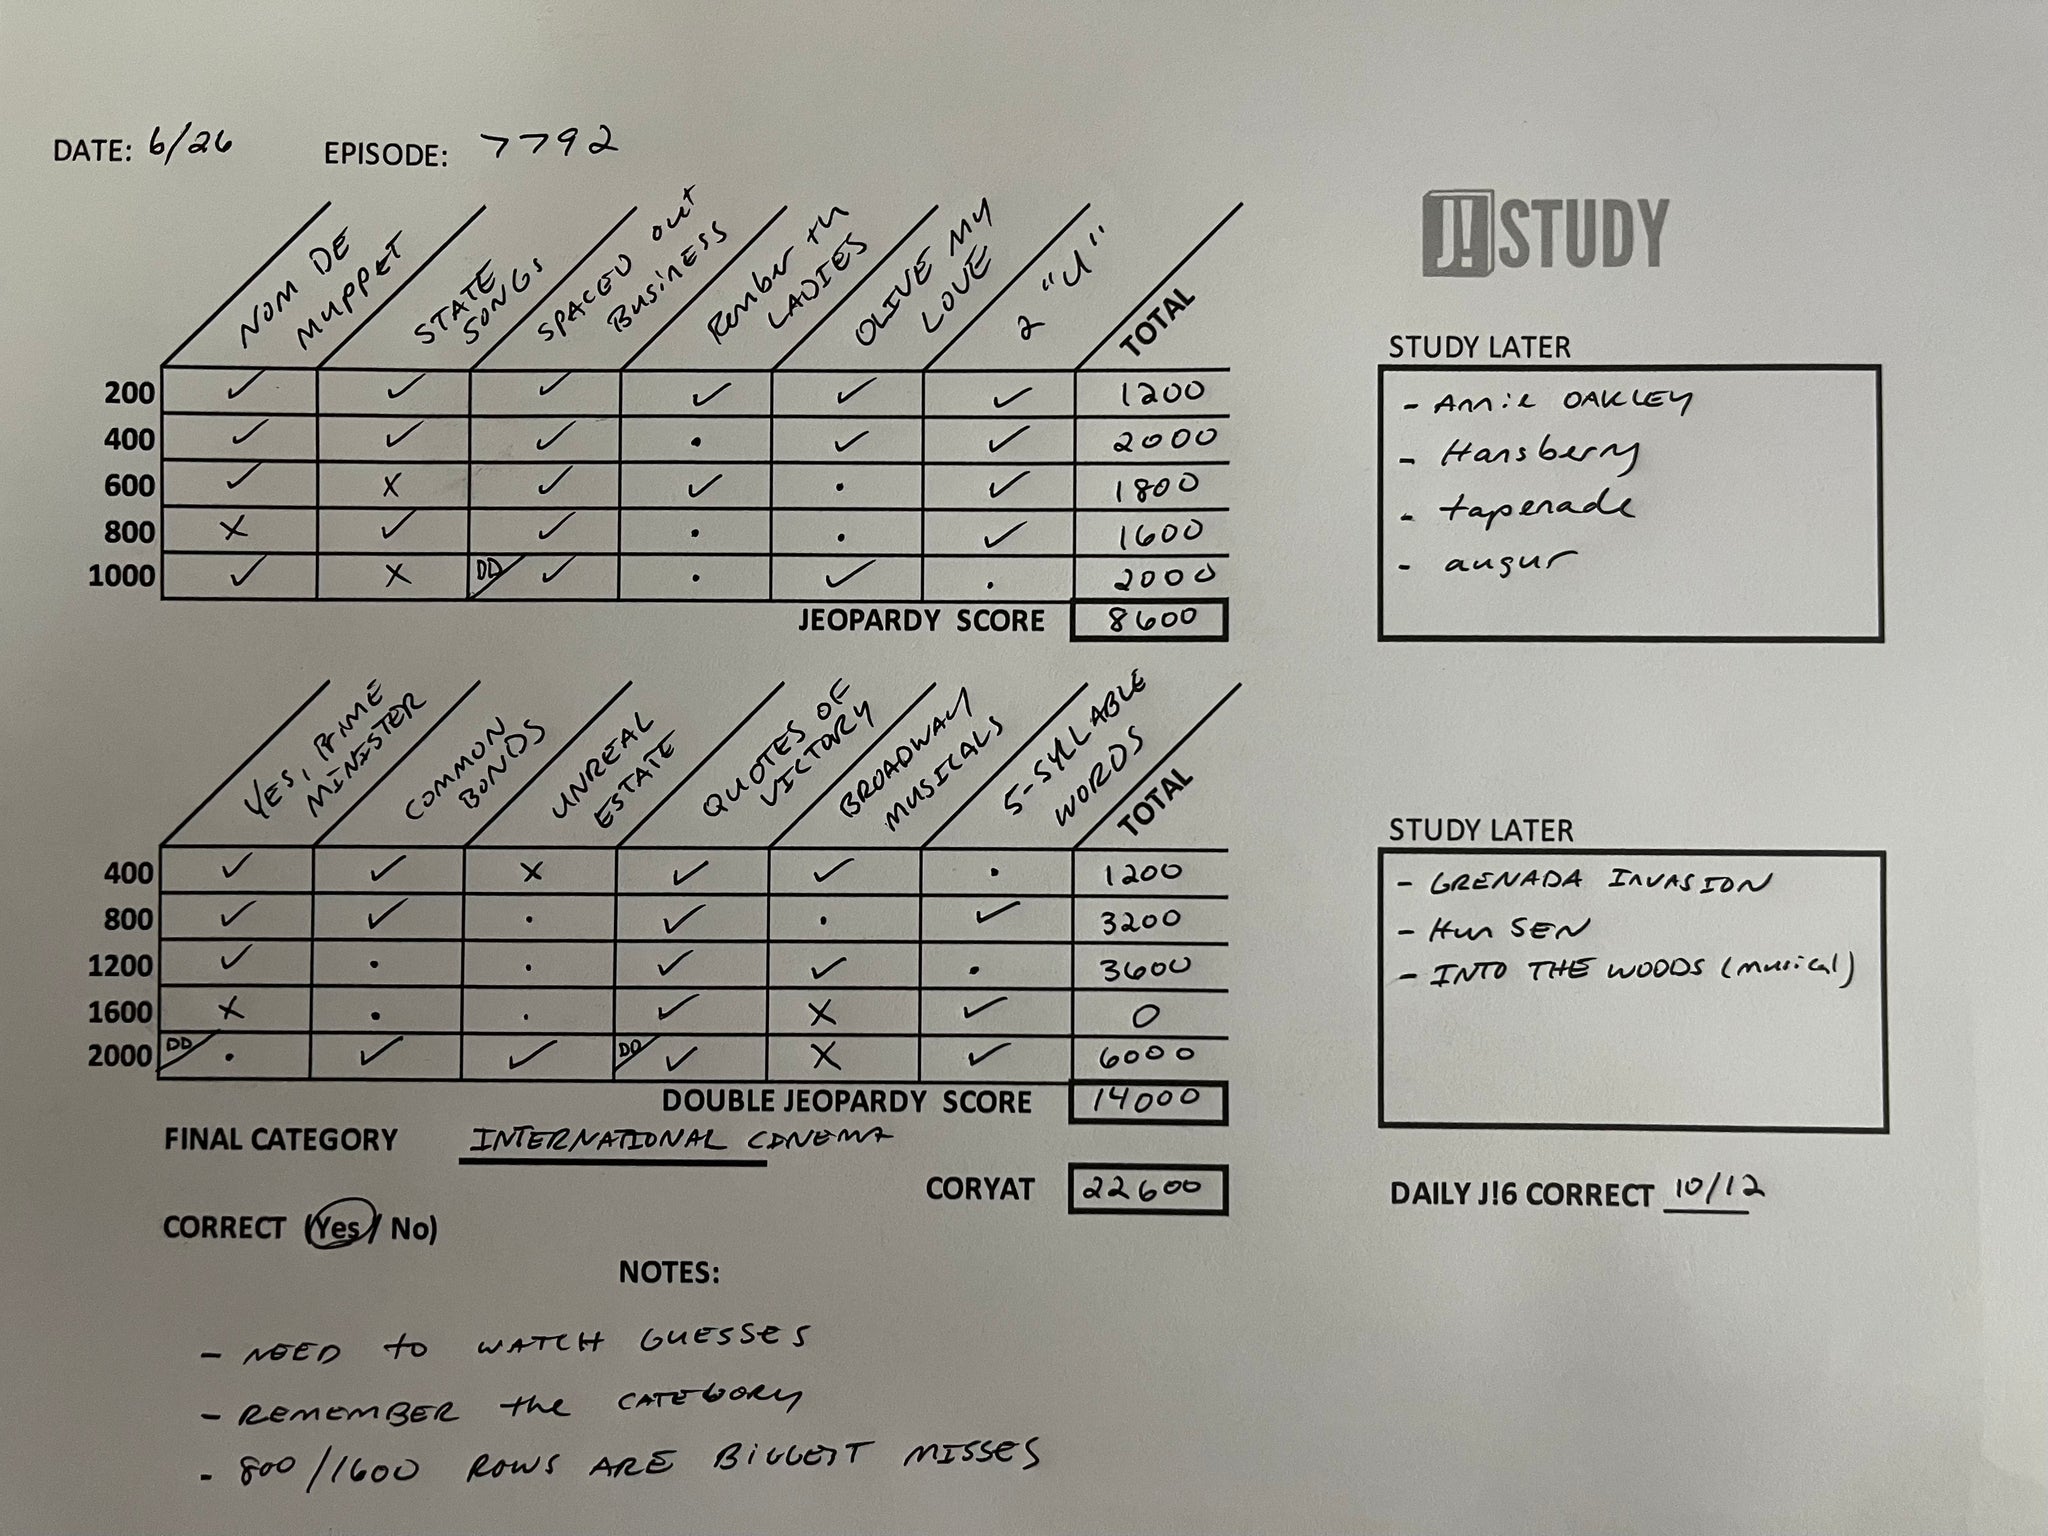 DATE: 6/26 EPISODE: 7792
J! STUDY
NOM DE MUPPET
STATE SONGS
SPACED OUT BUSINESS
Rember th LADIES
OLIVE MY LOVE
2 "U"
TOTAL
200 ✓ ✓ ✓ ✓ ✓ ✓ 1200
400 ✓ ✓ ✓ • ✓ ✓ 2000
600 ✓ X ✓ ✓ • ✓ 1800
800 X ✓ ✓ • • ✓ 1600
1000 ✓ X DD ✓ • ✓ • 2000
JEOPARDY SCORE 8600
STUDY LATER
- Annie OAKLEY
- Hansberry
- tapenade
- augur
YES, PRIME MINISTER
COMMON BONDS
UNREAL ESTATE
QUOTES OF VICTORY
BROADWAY MUSICALS
5-SYLLABLE WORDS
TOTAL
400 ✓ ✓ X ✓ ✓ • 1200
800 ✓ ✓ • ✓ • ✓ 3200
1200 ✓ • • ✓ ✓ • 3600
1600 X • • ✓ X ✓ 0
2000 DD • ✓ ✓ DD ✓ X ✓ 6000
DOUBLE JEOPARDY SCORE 14000
STUDY LATER
- GRENADA INVASION
- Hun SEN
- INTO THE WOODS (musical)
FINAL CATEGORY INTERNATIONAL CINEMA
CORYAT 22600
DAILY J!6 CORRECT 10/12
CORRECT (Yes / No)
NOTES:
- NEED to WATCH GUESSES
- REMEMBER the CATEGORY
- 800/1600 ROWS ARE BIGGEST MISSES